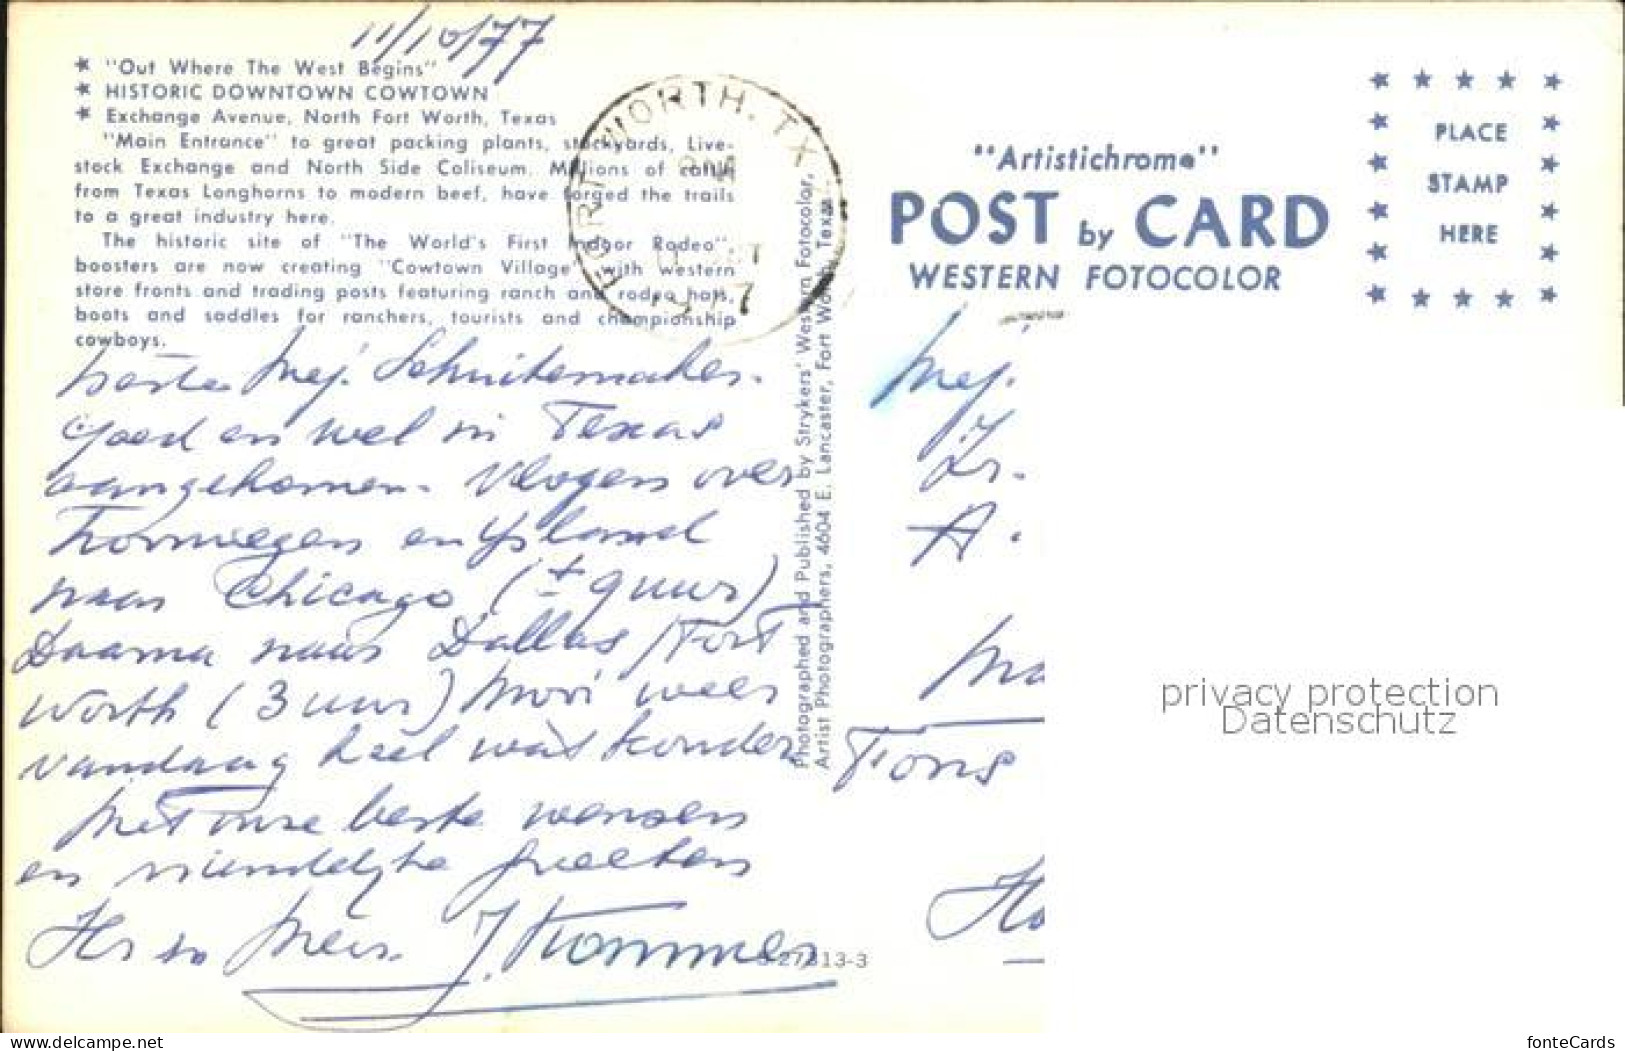 11/10/77
* "Out Where The West Begins"
* HISTORIC DOWNTOWN COWTOWN
* Exchange Avenue, North Fort Worth, Texas
"Main Entrance" to great packing plants, stockyards, Live-
stock Exchange and North Side Coliseum. Millions of cattle
from Texas Longhorns to modern beef, have forged the trails
to a great industry here.
The historic site of "The World's First Indoor Rodeo",
boosters are now creating "Cowtown Village" with western
store fronts and trading posts featuring ranch and rodeo hats,
boots and saddles for ranchers, tourists and championship
cowboys.
FORT WORTH, TX
beste Mej. Schuitemaker.
Goed en wel in Texas
aangekomen. Vlogen over
Noorwegen en Ysland
naar Chicago (± 9 uur)
Daarna naar Dallas/Fort
Worth (3 uur) Mooi weer
vandaag heel wat zonder
Met onze beste wensen
en vriendelijke groeten
Hr en Mevr. J. Kommer
Photographed and Published by Strykers' Western Fotocolor,
Artist Photographers, 4604 E. Lancaster, Fort Worth, Texas
S-27813-3
"Artistichrome"
POST by CARD
WESTERN FOTOCOLOR
PLACE
STAMP
HERE
Mej.
Zr.
A.
Ma
Ho
privacy protection
Datenschutz
www.delcampe.net
fonteCards